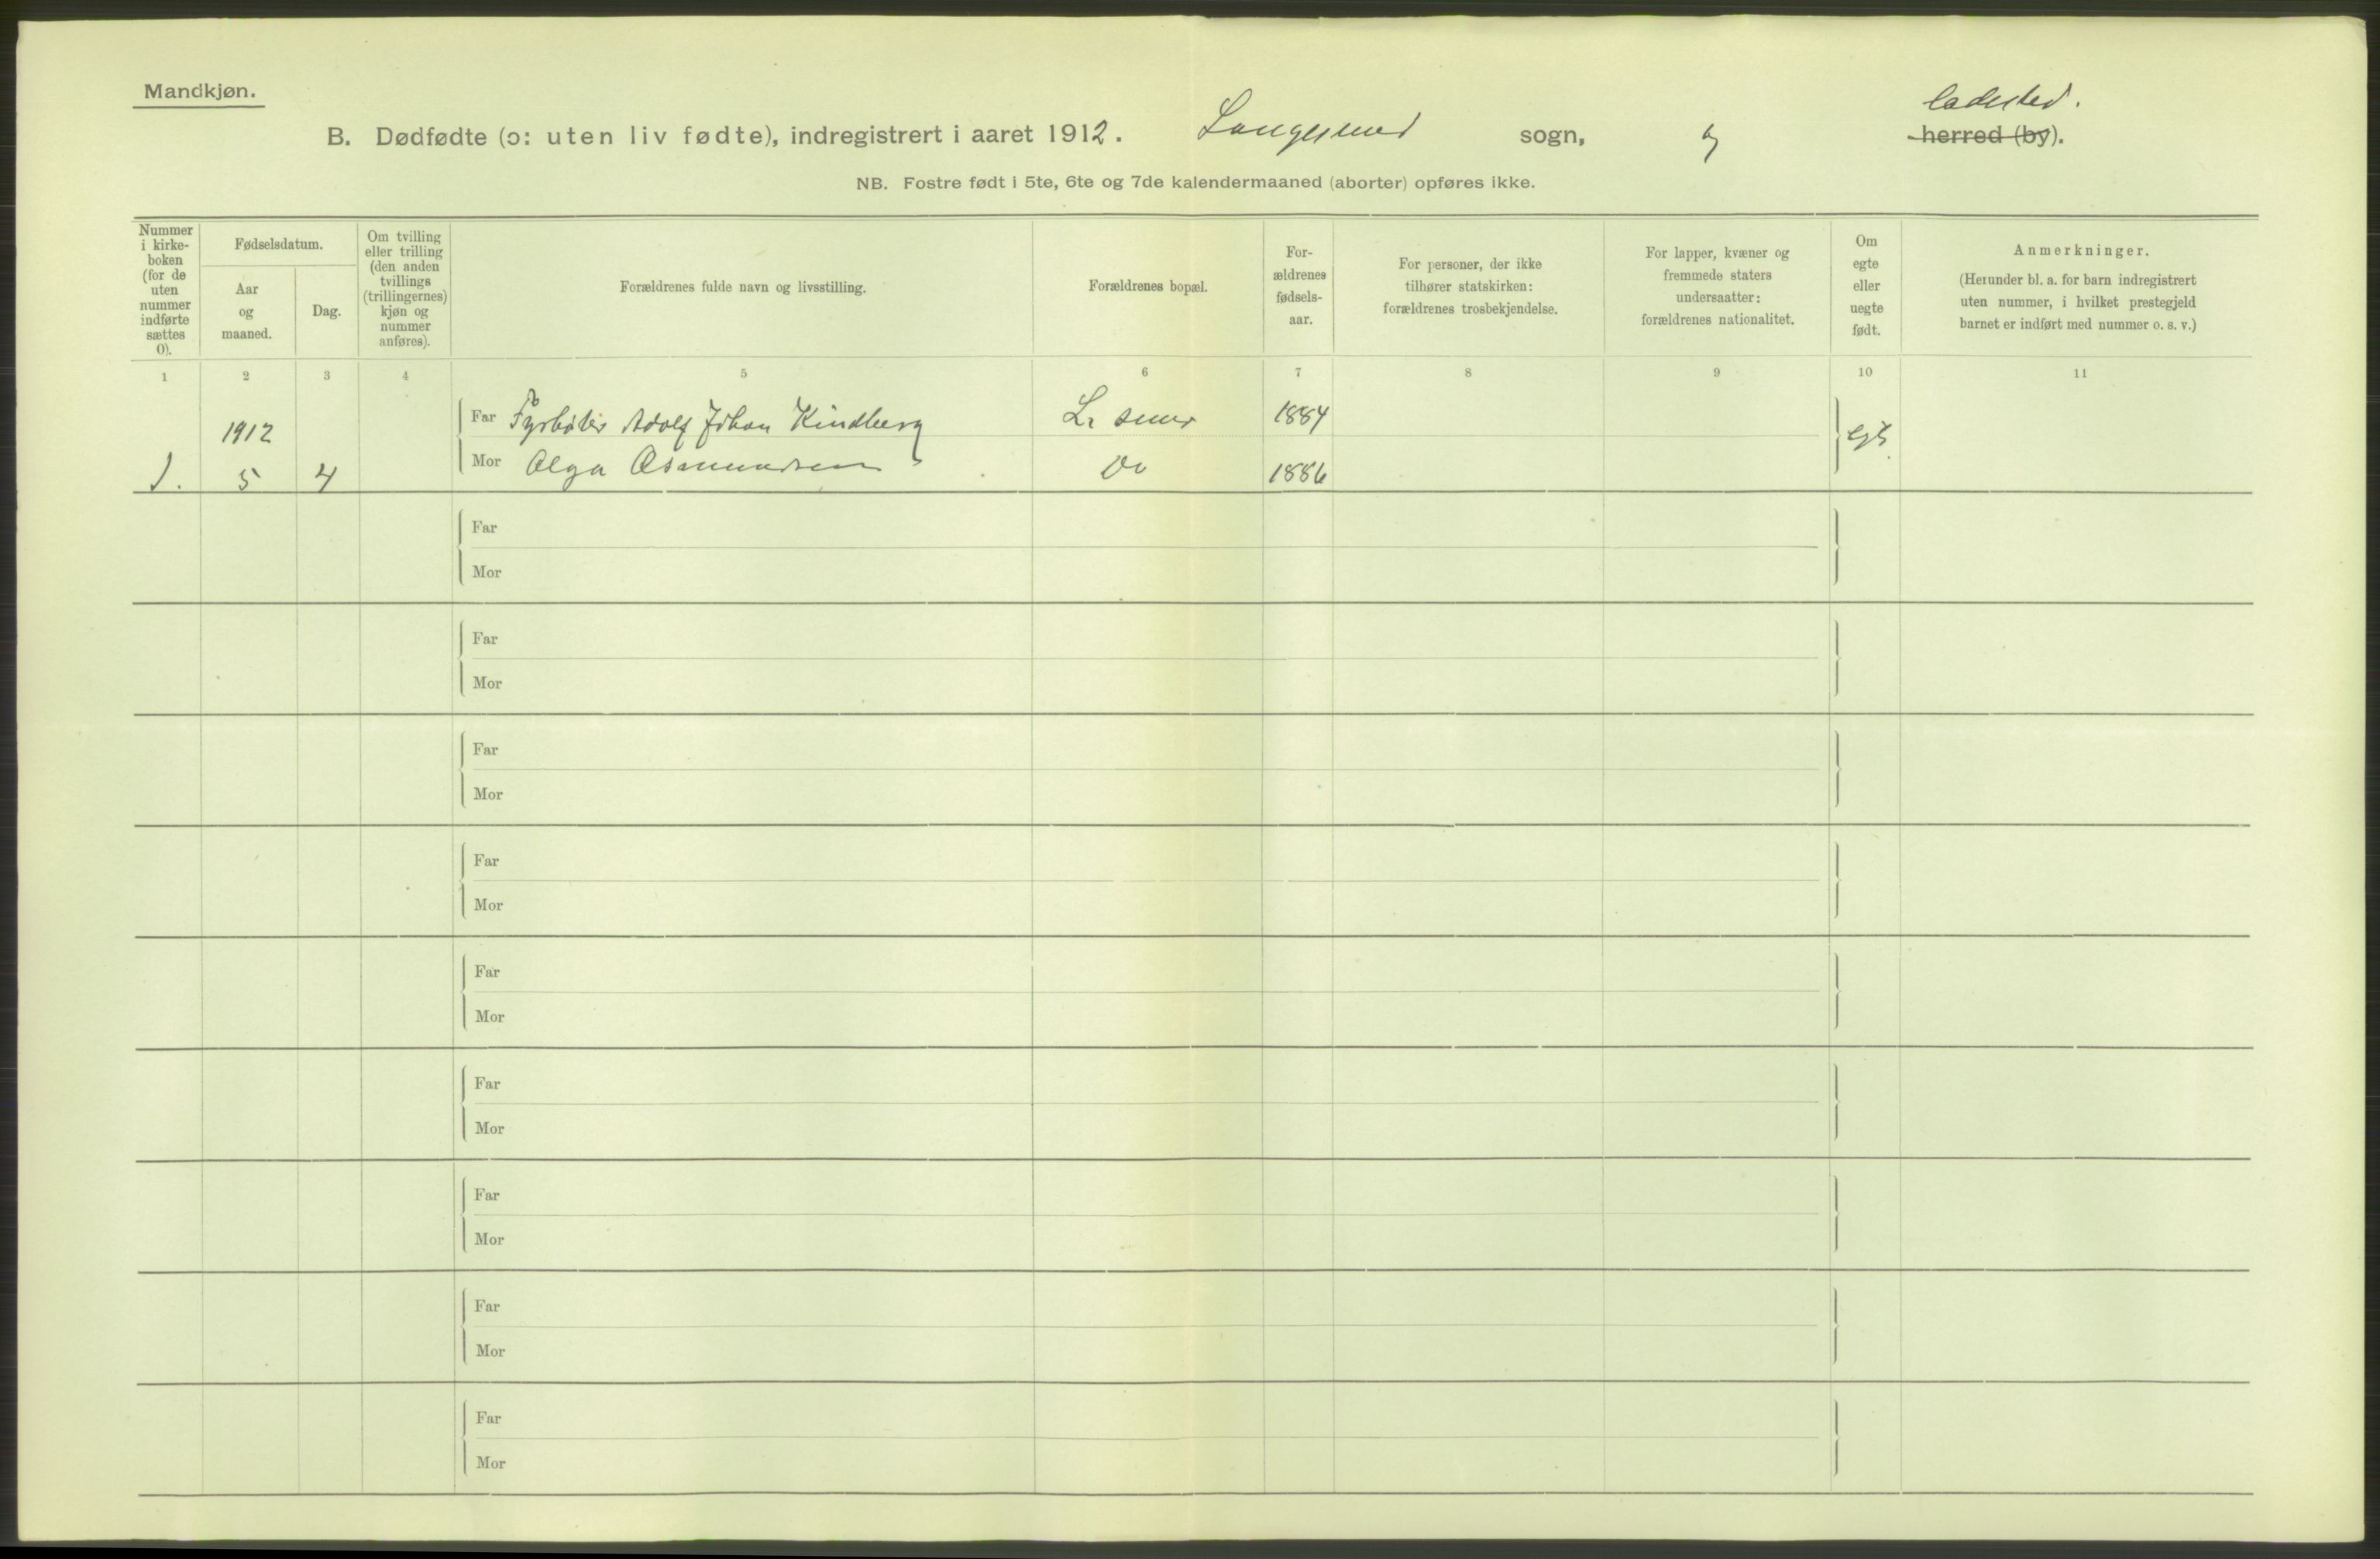 Mandkjøn.
B. Dødfødte (ɔ: uten liv fødte), indregistrert i aaret 1912. Langesund sogn, og ladested.
herred (by).
NB. Fostre født i 5te, 6te og 7de kalendermaaned (aborter) opføres ikke.
Nummer
i kirke-
boken
(for de
uten
nummer
indførte
sættes
0).
Fødselsdatum.
Aar
og
maaned.
Dag.
Om tvilling
eller trilling
(den anden
tvillings
(trillingernes)
kjøn og
nummer
anføres).
Forældrenes fulde navn og livsstilling.
Forældrenes bopæl.
For-
ældrenes
fødsels-
aar.
For personer, der ikke
tilhører statskirken:
forældrenes trosbekjendelse.
For lapper, kvæner og
fremmede staters
undersaatter:
forældrenes nationalitet.
Om
egte
eller
uegte
født.
Anmerkninger.
(Herunder bl. a. for barn indregistrert
uten nummer, i hvilket prestegjeld
barnet er indført med nummer o. s. v.)
1 2 3 4 5 6 7 8 9 10 11
1912 Far Fyrbøter Adolf Johan Kindberg 1884
1. 5 4 Mor Olga Asmundsen Do 1886
Far
Mor
Far
Mor
Far
Mor
Far
Mor
Far
Mor
Far
Mor
Far
Mor
Far
Mor
Far
Mor